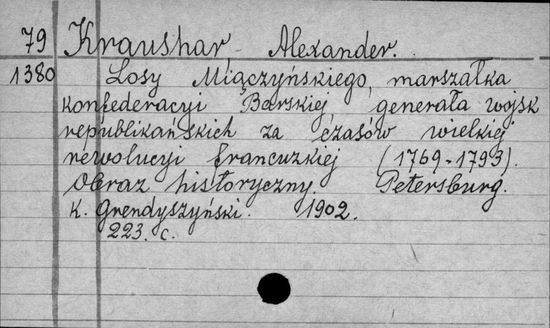 79 Kraushar, Alexander.
1380 Losy Miączyńskiego, marszałka
konfederacyi Barskiej, generała wojsk
republikańskich za czasów wielkiej
rewolucyi francuzkiej (1769-1793).
Obraz historyczny. Petersburg.
K. Grendyszyński. 1902.
223. c.